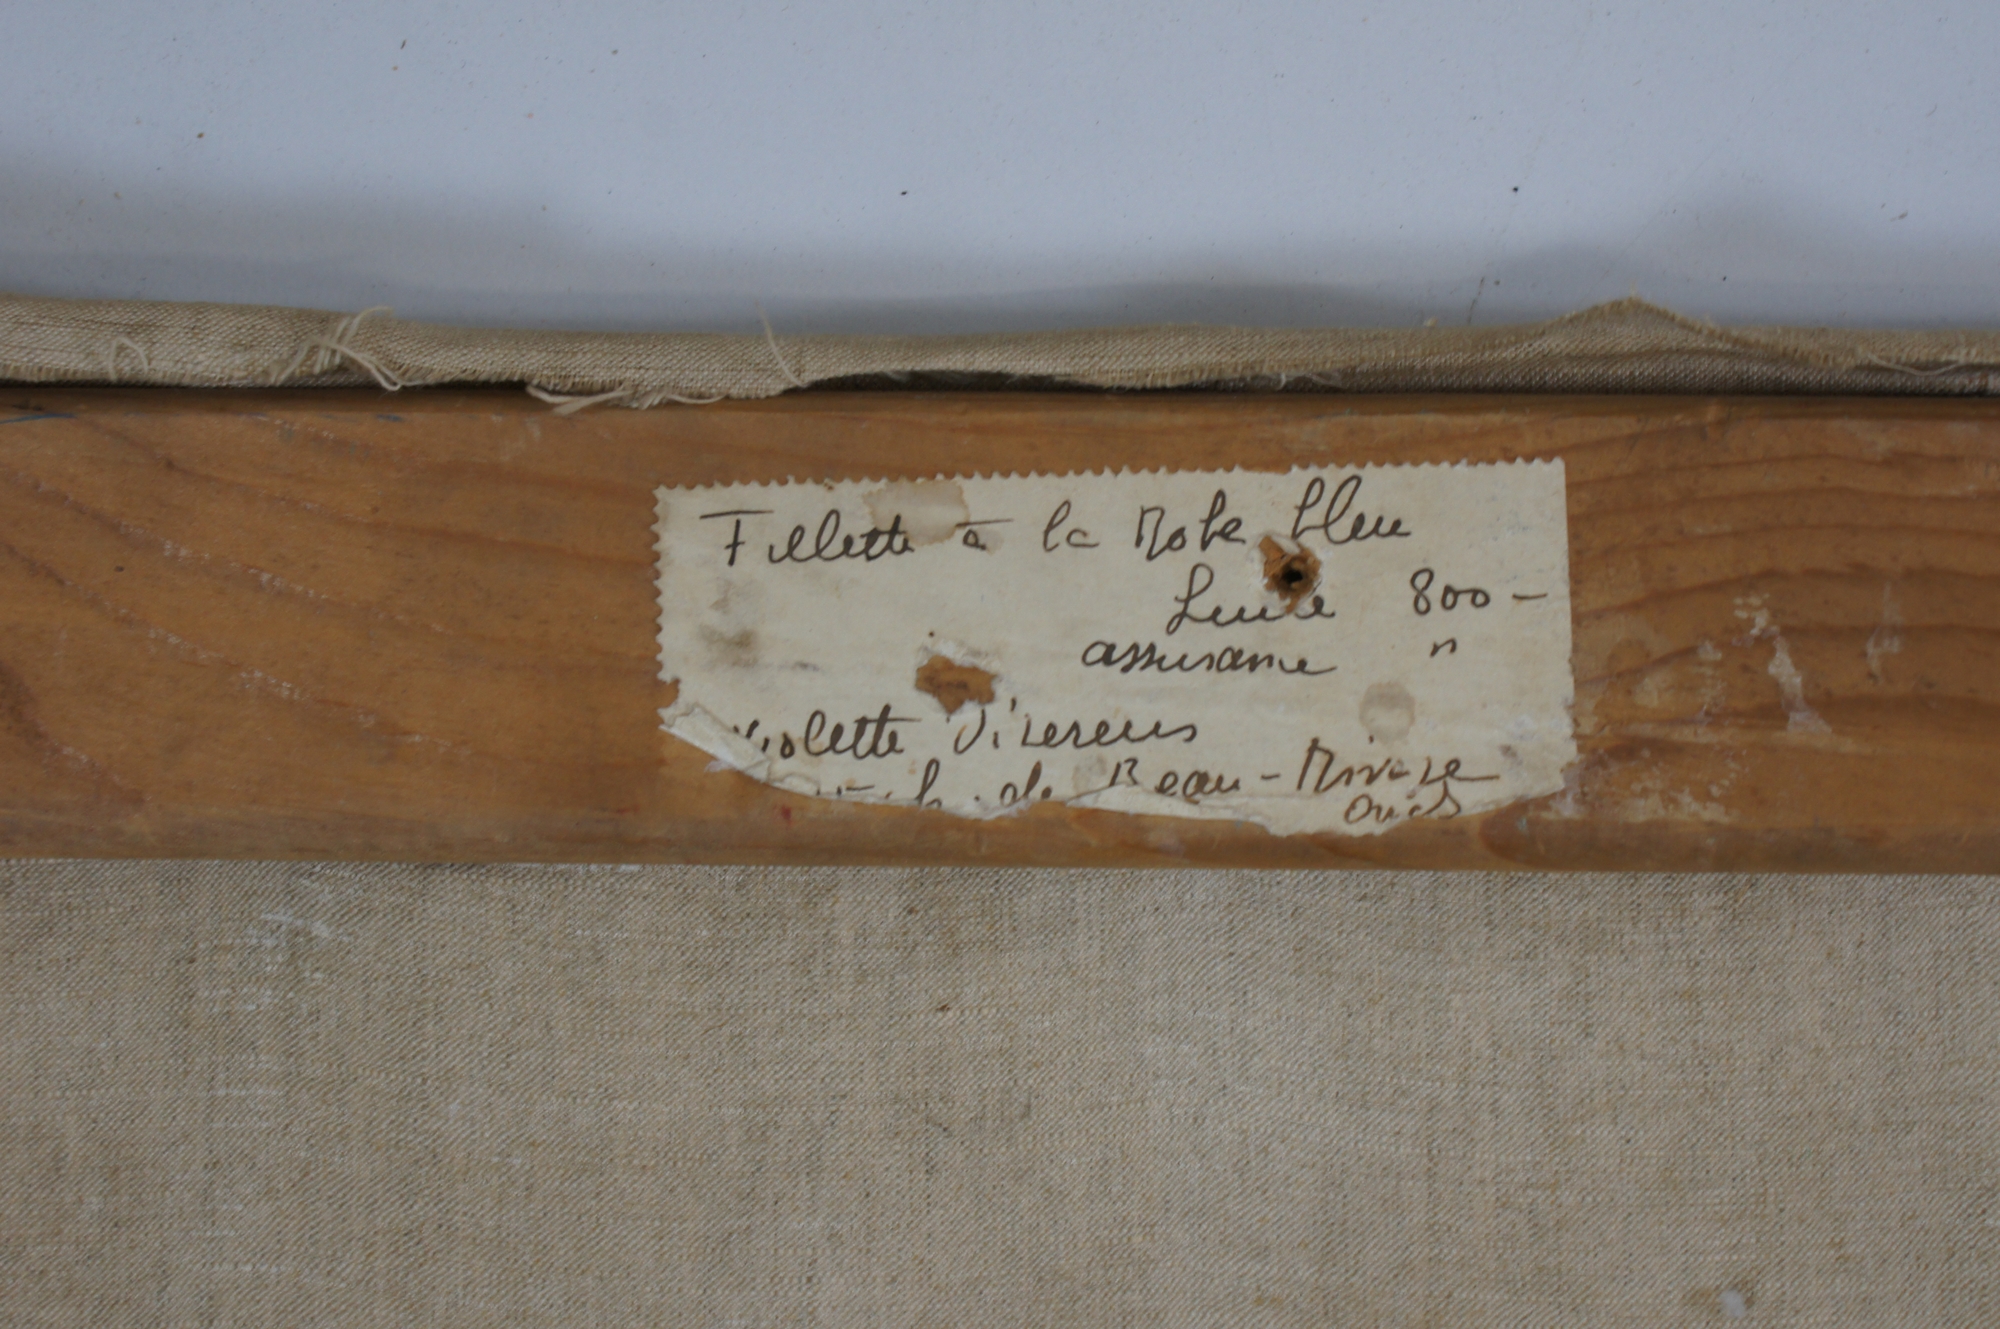 Fillette à la Robe bleu
800 -
assurance "
Violette Diserens
ch. de Beau-Rivage
Ouchy